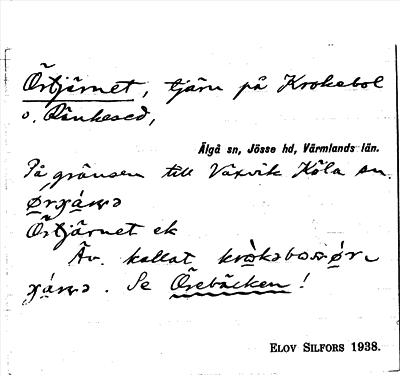 Örtjärnet, tjärn på Krokebol
o. Rönkesed,
Älgå sn, Jösse hd, Värmlands län.
På gränsen till Växvik Köla sn.
Örtjärnet ek
Äv. kallat
Se Örebäcken!
ELOV SILFORS 1938.